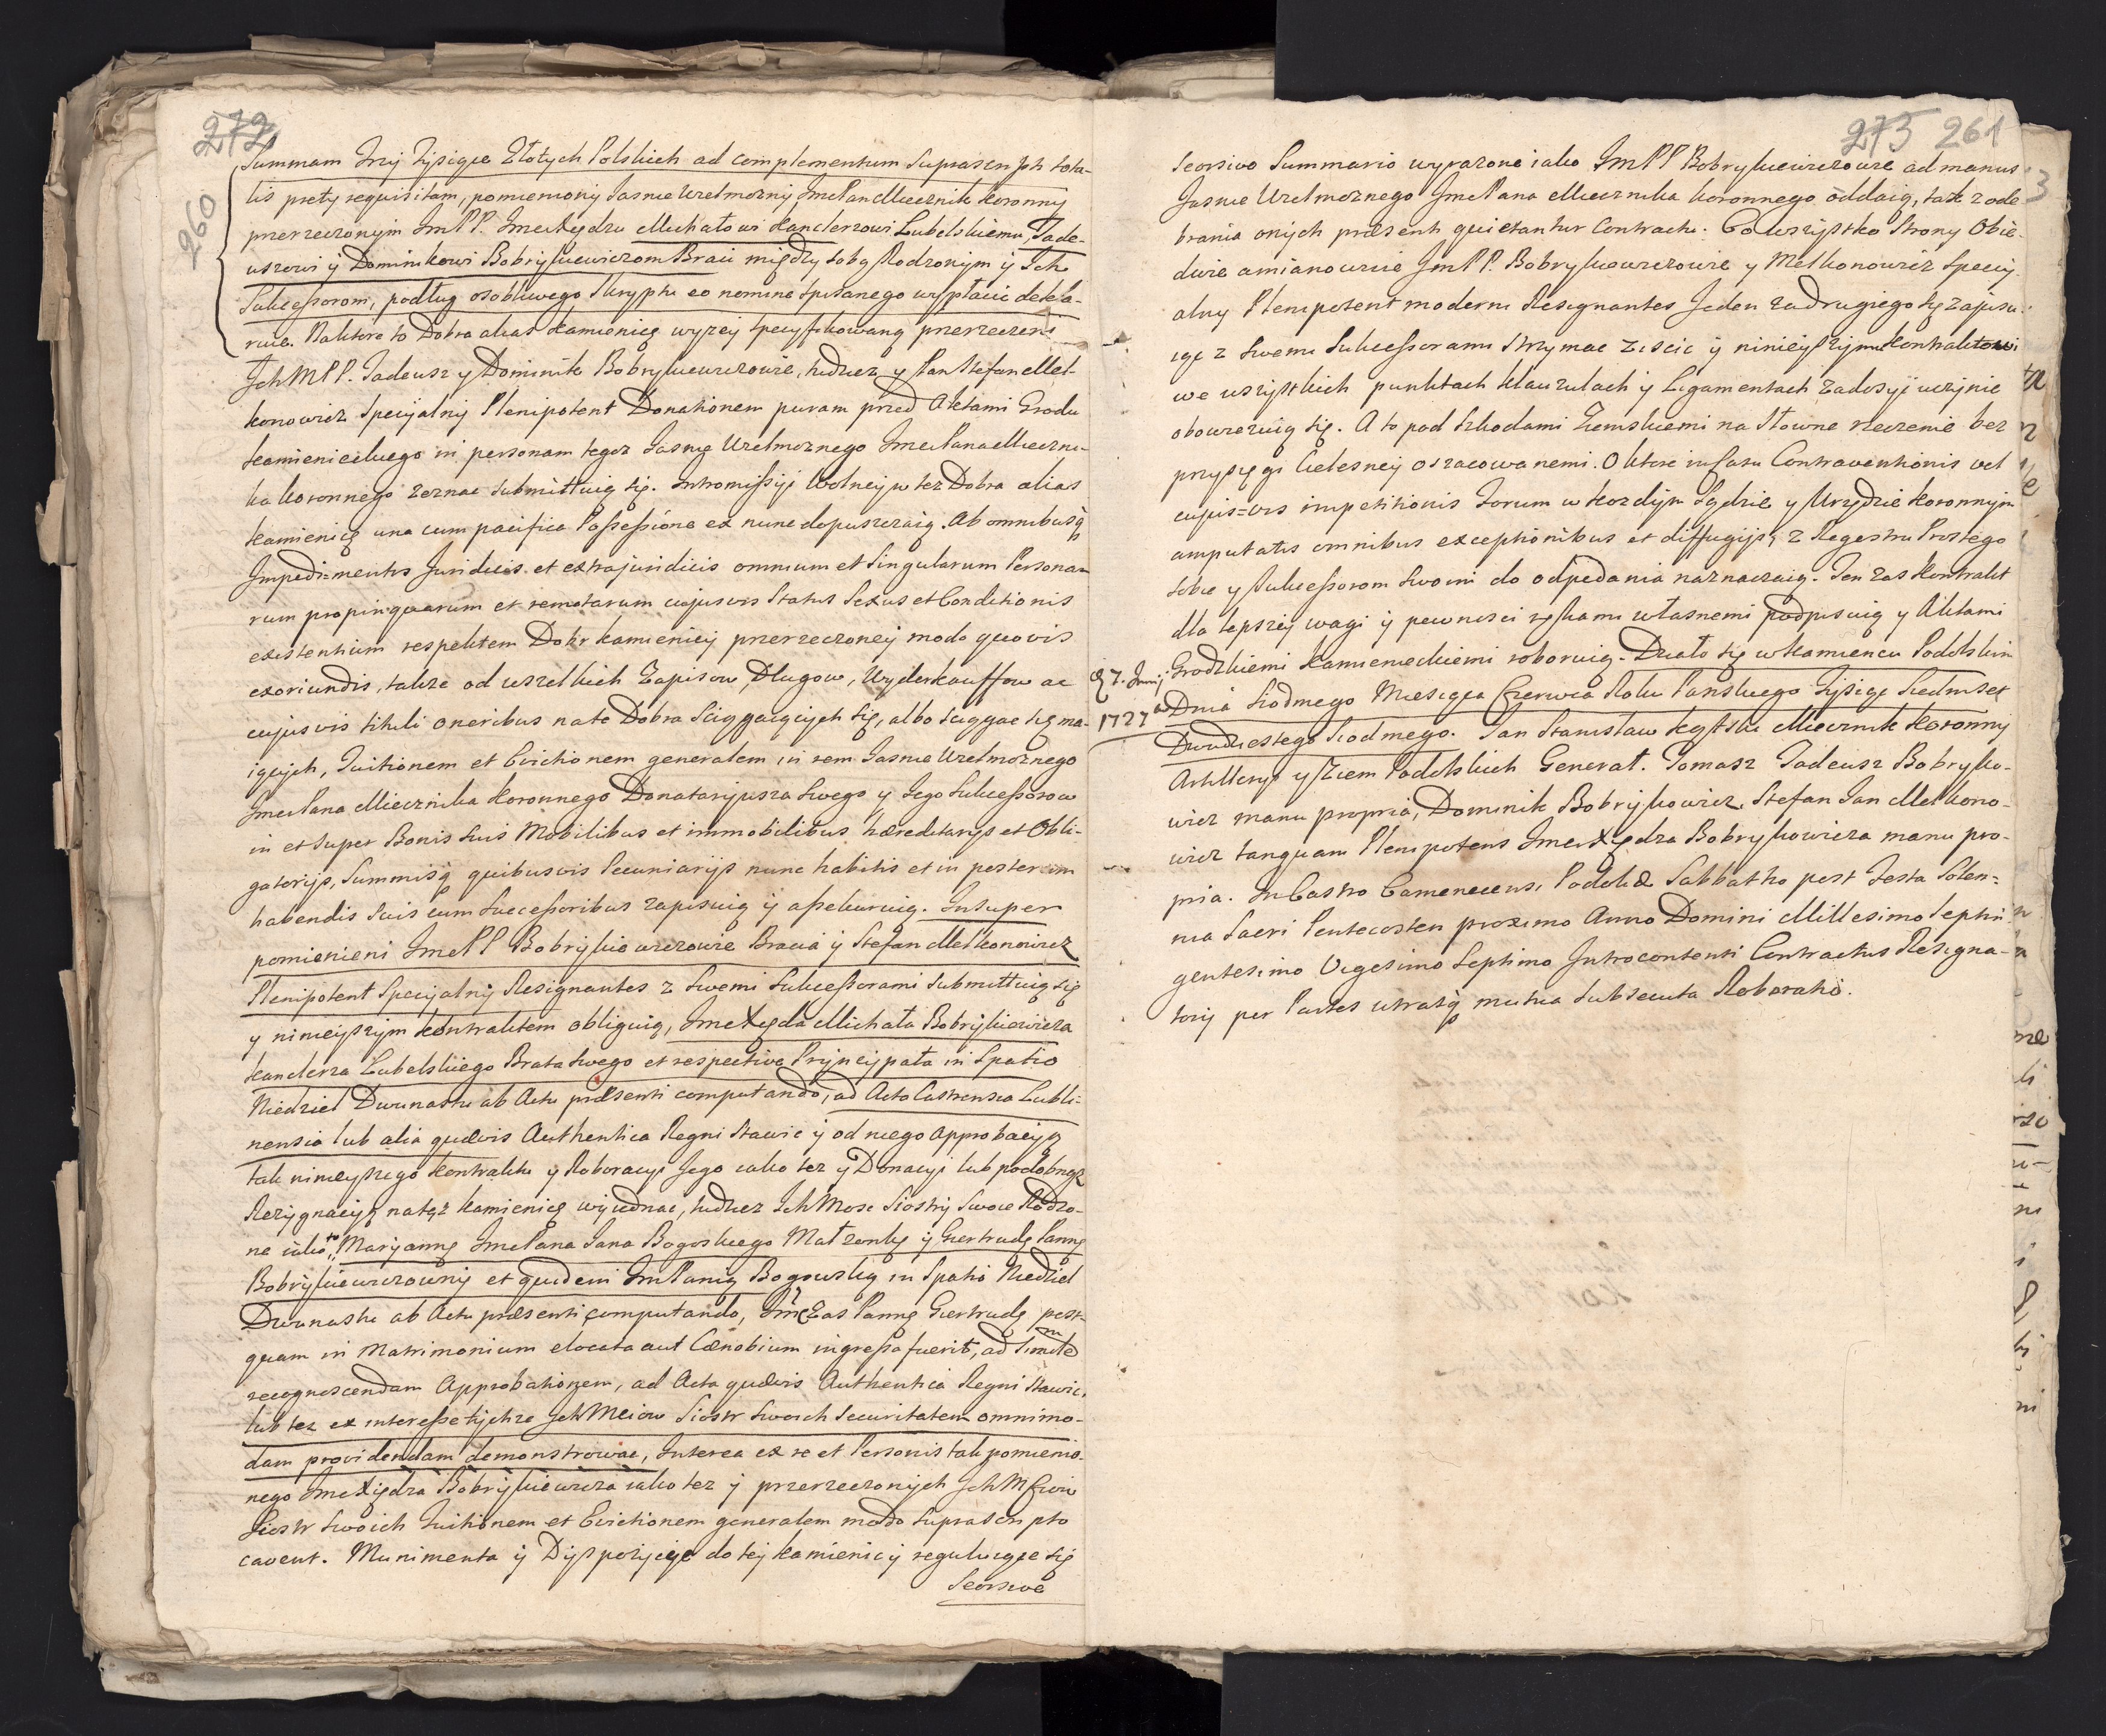 272
260
Summam Trzy Tysiące Złotych Polskich ad complementum suprascripti tota-
lis prety requisitam, pomieniony Jasnie Wielmozny Jme Pan Miecznik Koronny
przerzeczonym Jm PP. Jme Xiędzu Michałowi Kanclerzowi Lubelskiemu, Tade-
uszowi y Dominikowi Bobrykiewiczom Braci między sobą Rodzonym y Ich
Sukcessorom, podług osobliwego Skryptu eo nomine spisanego wypłacic dekla-
ruie. Naktore to Dobra alias Kamienicę wyzey specyfikowaną przerzeczeni
Ich M PP. Tadeusz y Dominik Bobrykiewiczowie, tudziez y Pan Stefan Mel-
konowicz Specyalny Plenipotent Donationem puram przed Aktami Grodu
Kamienieckiego in personam tegoz Jasnie Wielmoznego Jme Pana Mieczni-
ka Koronnego zeznac submittuią się. Intromissyi Wolney w tez Dobra alias
Kamienicę una cum pacifica Possessione ex nunc dopuszczaią. Ab omnibusq
Impedi=mentis Juridicis et extrajuridicis omnium et singularum Persona-
rum propinquarum et remotarum cujusvis Status Sexus et Conditionis
existentium respektem Dobr Kamienicy przerzeczoney modo quovis
exoriundis, takze od wszelkich Zapisow, Długow, Wyderkauffow ac
cujusvis tituli oneribus nate Dobra sciągaiących się, albo sciągac się ma-
iących, Tuitionem et Evictionem generalem in rem Jasnie Wielmoznego
Jme Pana Miecznika Koronnego Donataryusza swego y Jego Sukcessorow
in et super Bonis suis Mobilibus et immobilibus hæreditarys et Obli-
gatorijs, Summisq quibusvis Pecuniarijs nunc habitis et in posterum
habendis suis cum Successoribus zapisuią y assekuruią. Insuper
pomienieni Jme PP Bobrykiewiczowie Bracia y Stefan Melkonowicz
Plenipotent Specyalny Resignantes z swemi Sukcessorami submittuią się
y ninieyszym Kontraktem obliguią, Jme Xiędza Michała Bobrykiewicza
Kanclerza Lubelskiego Brata swego et respective Pryncypała in Spatio
Niedziel Dwunastu ab Actu præsenti computando, ad Acta Castrensia Lubli-
nensia lub alia quævis Authentica Regni stawic y od niego Approbacyą
tak ninieyszego Kontraktu y Roboracyi Jego iako tez y Donacyi lub podobnąz
Rezygnacyą natęz Kamienicę wyiednac, tudziez Ich Mosc Siostry swoie Rodzo-
ne iako to Maryannę Jme Pana Jana Bogoskiego Małzonkę y Giertrudę Pannę
Bobrykiewiczowny et quidem Jm Panią Bogowską in Spatio Niedziel
Dwunastu ab Actu præsenti computando, Jmć Zas Pannę Giertrudę post-
quam in Matrimonium elocata aut Cænobium ingressa fuerit, ad simile
recognoscendam Approbationem, ad Acta quævis Authentica Regni stawic,
lub tez ex interesse tychze Ich Mciow Siostr swoich securitatem omnimo-
dam providendam demonstrowac, Interea ex re et Personis tak pomienio-
nego Jme Xiędza Bobrykiewicza iako tez y przerzeczonych Ich Mciow
Siostr swoich Tuitionem et Evictionem generalem modo suprascripto
cavent. Munimenta y Dyspozycye do tey Kamienicy reguluiące się
Seorsive
273 261
Seorsivo Summario wyrazone iako Jm PP Bobrykiewiczowie ad manus
Jasnie Wielmoznego Jme Pana Miecznika Koronnego oddaią, tak z ode
brania onych præsenti quietantur Contractu. Co wszystko Strony Obie-
dwie a mianowicie Jm PP. Bobrykowiczowie y Melkonowicz Specy-
alny Plenipotent moderni Resignantes Jeden zadrugiego się zapisu-
iąc z swemi Sukcessorami strzymac ziscic y ninieyszymu Kontraktowi
we wszystkich punktach klauzulach y Ligamentach zadosyc uczynic
obowięzuią się. A to pod Szkodami Ziemskiemi na Słowne rzeczenie bez
przysięgi cielesney oszacowanemi. O ktore in Casu Contraventionis vel
cujus=vis impetitionis Forum w kozdym Sądzie y Urzędzie Koronnym
amputatis omnibus exceptionibus et diffugijs, z Regestru Prostego
sobie y Sukcessorom swoim do odpedania naznaczaią. Ten zas Kontrakt
dla lepszey wagi y pewnosci rękami własnemi podpisuią y Aktami
Grodzkiemi Kamienieckiemi roboruią. Działo się w Kamiencu Podolskim
d 7. Junij
1727
Dnia Siodmego Miesiąca Czerwca Roku Panskiego Tysiąc Siedmset
Dwudziestego Siodmego. Jan Stanisław Kątski Miecznik Koronny
Artilleryi y Ziem Podolskich Generał. Tomasz Tadeusz Bobryko-
wicz manu propria, Dominik Bobrykowicz. Stefan Jan Melkono-
wicz tanquam Plenipotens Jme Xiędza Bobrykowicza manu pro-
pria. In Castro Camenecensi Podoliæ Sabbatho post Festa Solen=
nia Sacri Pentecosten proximo Anno Domini Millesimo Septin
gentesimo Vigesimo Septimo Introcontenti Contractus Resigna-
torij per Partes utrasq mutua subsecuta Roboratio.